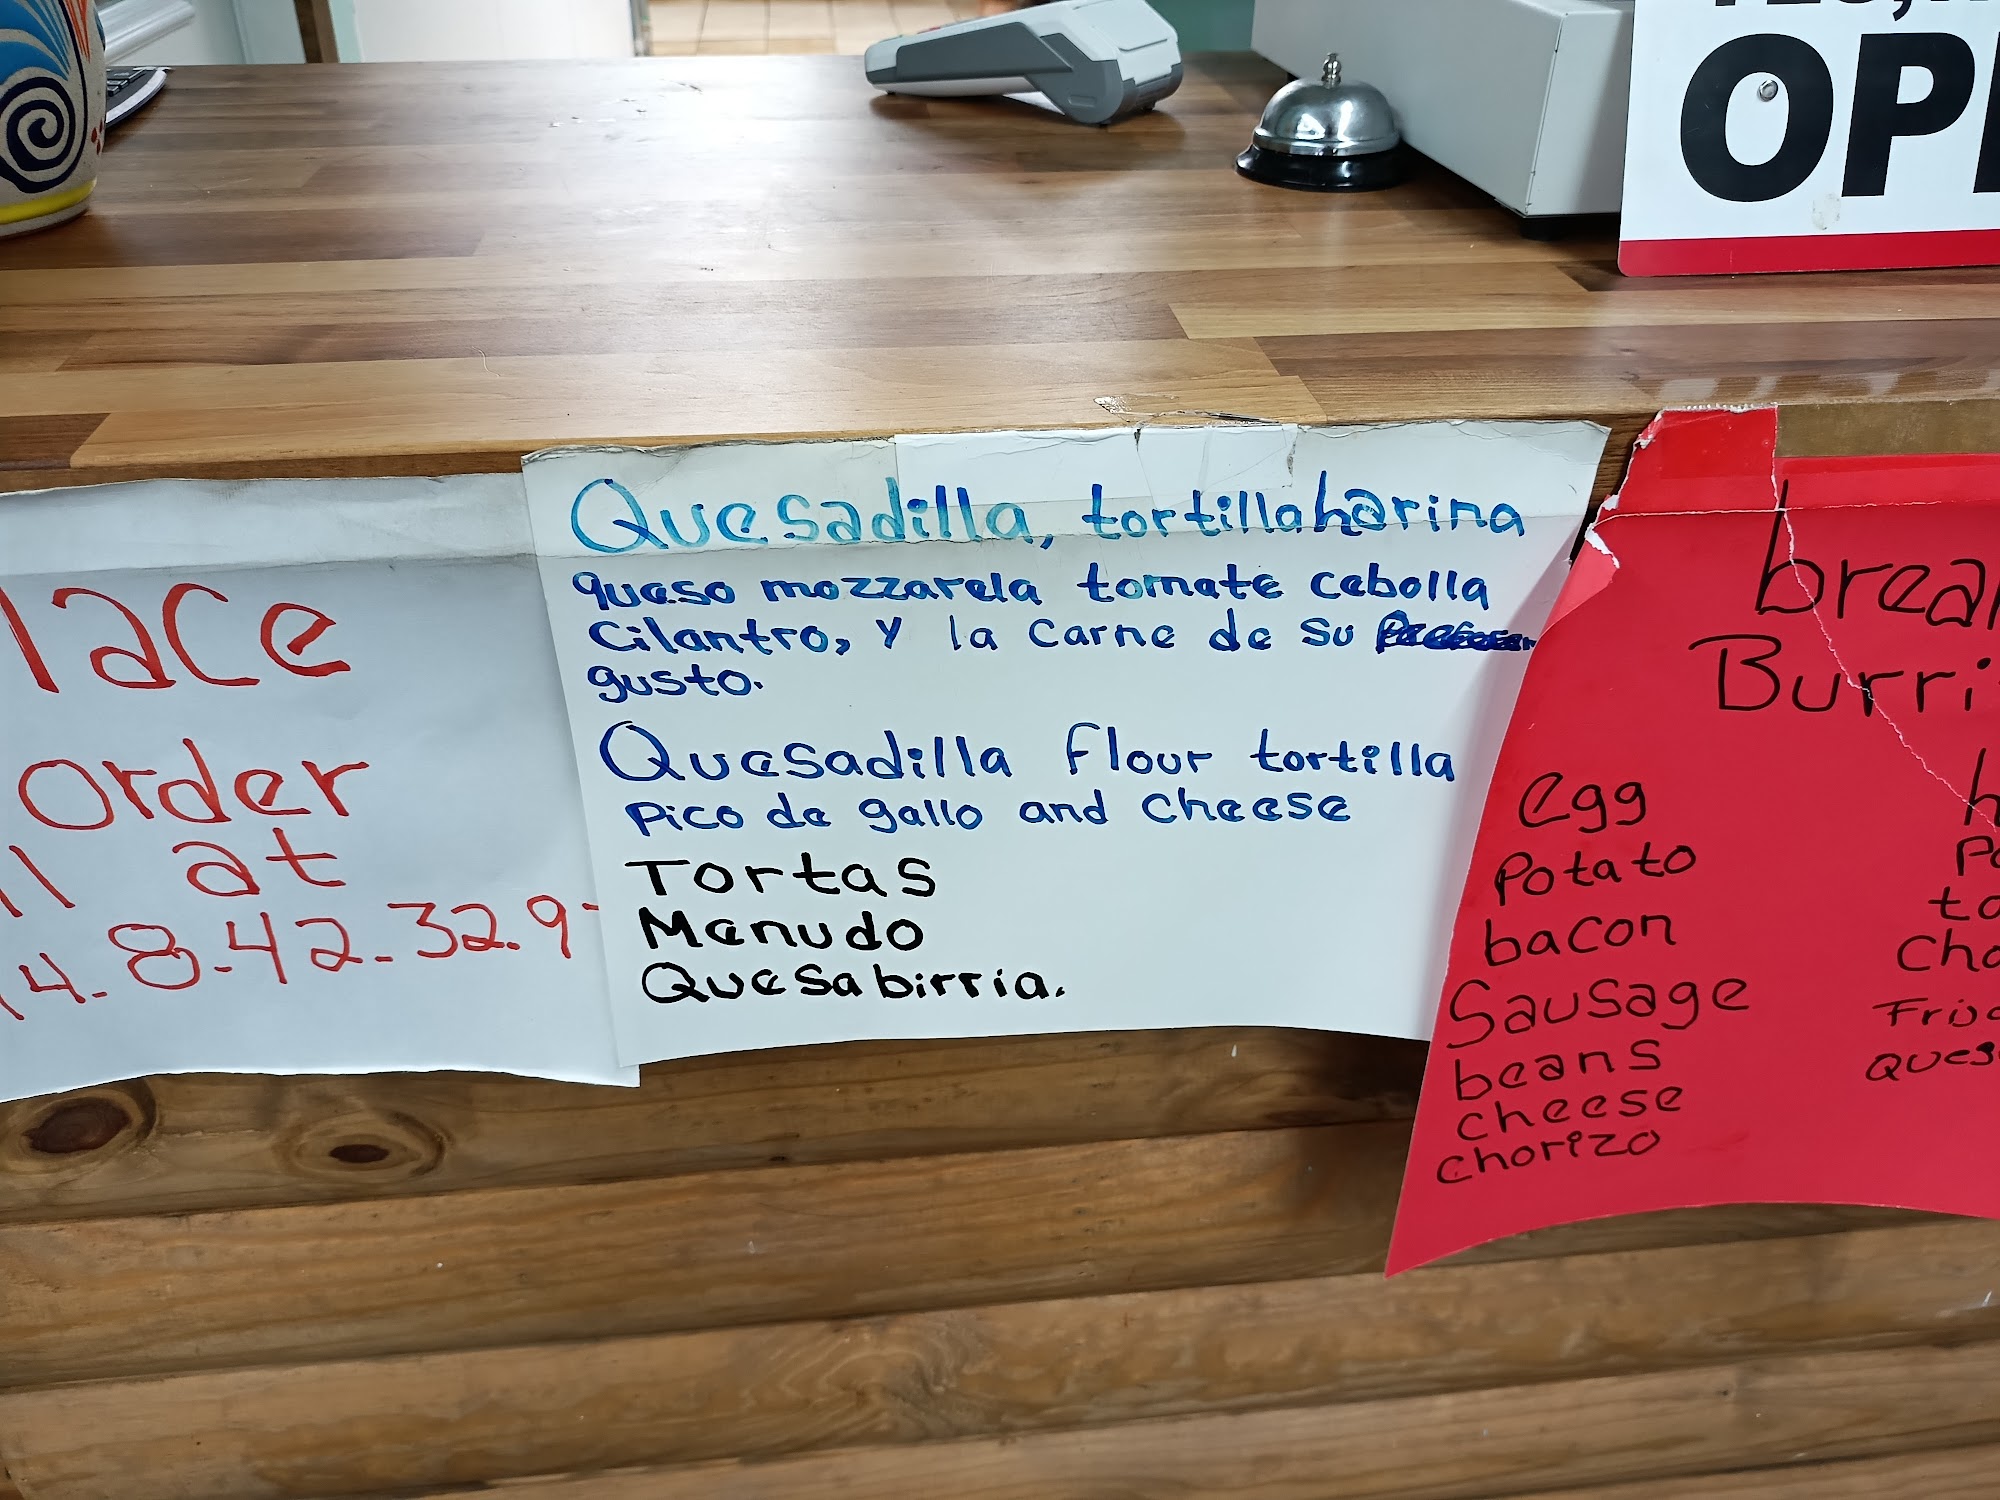 OP
lace
Order
at
4.8.42.32.9
Quesadilla, tortilla harina
queso mozzarela tomate cebolla
Cilantro, y la carne de su
gusto.
Quesadilla Flour tortilla
Pico de gallo and cheese
Tortas
Menudo
Quesabirria.
brea
Burri
egg
Potato
bacon
Sausage
beans
cheese
chorizo
h
to
Cho
Frij
ques